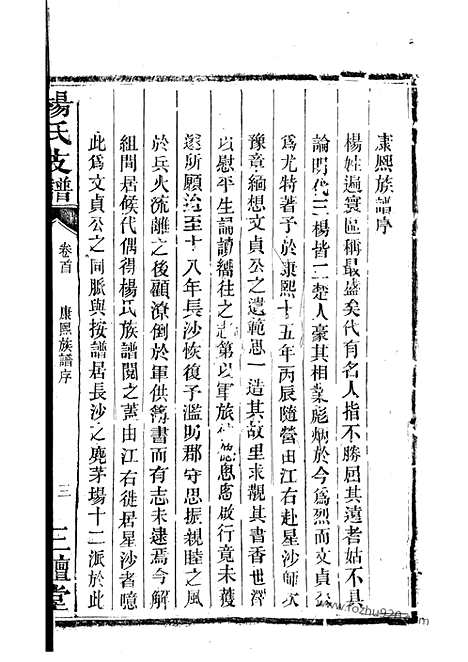 康熙族譜序
楊姓遍寰區稱最盛矣代有名人指不勝屈其遠者姑不具
論明代三楊皆一二楚人豪其相業彪炳於今爲烈而文貞公
爲尤特著予於康熙十五年丙辰隨營由江右赴星沙師次
豫章緬想文貞公之遺範思一造其故里求觀其書香世澤
以慰平生誦讀嚮往之志第以軍旅倥傯悤悤啟行竟未獲
遂所願迨至十八年長沙恢復予濫叨郡守思振親睦之風
於兵火流離之後顧潦倒於軍供簿書而有志未逮焉今解
組閒居候代偶得楊氏族譜閱之蓋由江右徙居星沙者噫
此爲文貞公之同脈與按譜居長沙之麂茅場十二派於此
楊氏支譜
卷首
康熙族譜序
三
三鱣堂
www.fozhu920.com